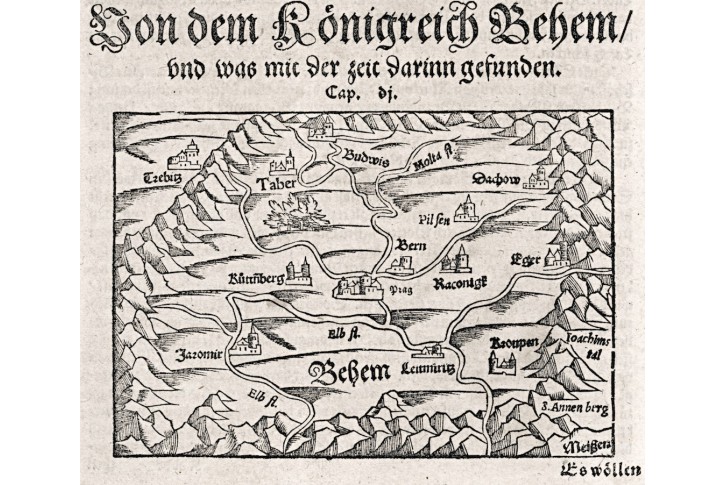 Von dem Königreich Behem/
vnd was mit der zeit darinn gefunden.
Cap. dj.
Budwis
Molta fl.
Trebitz
Taber
Dachow
Pilsen
Bern
Eger
Küttñberg
Raconigk
Prag
Elb fl.
Jaromir
Kronpen
Joachims
tal
Behem
Leitmiritz
Elb fl.
S. Annen berg
Meißen
Es wöllen